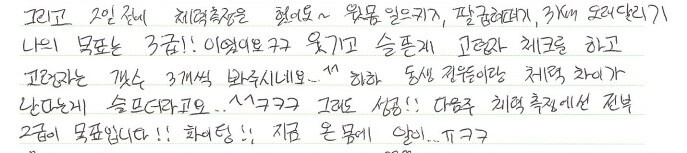 그리고 2일 전에 체력측정을 했어요~ 윗몸 일으키기, 팔굽혀펴기, 3km 오래달리기
나의 목표는 3급!! 이었어요ㅋㅋ 웃기고 슬픈게 고령자 체크를 하고
고령자는 갯수 3개씩 봐주시네요...^^ 하하 동생 전우들이랑 체력 차이가
난다는게 슬프더라고요..^^ㅋㅋㅋ 그래도 성공!! 다음주 체력 측정에선 전부
2급이 목표입니다!! 화이팅!! 지금 온 몸에 알이...ㅠㅋㅋ